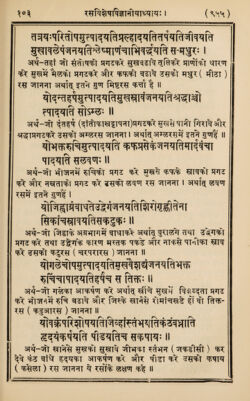 १०३ रसविशेषविज्ञानीयाध्यायः। (९५५)
तत्रयःपरितोषमुत्पादयतिप्रल्हादयतितर्पयतिजीवयति
मुखावलेपंजनयतिश्लेष्माणंचाभिवर्द्धयति स मधुरः।
अर्थ-तहां जो संतोषको प्रगटकरे सुखबढावे तृप्तिकरे प्राणोंको धारण
कर मुखमें मैलको प्रगटकरे और कफको बढावे उसको मधुर (मीठा)
रस जानना । अर्थात् इतने गुण मिष्टरस कर्त्ता है ।
योदन्तहर्षमुत्पादयतिमुखस्रावंजनयतिश्रद्धाञ्चो
त्पादयति सोऽम्लः॥
अर्थ-जो दंतहर्ष (दांतोंकाआंबुजाना) प्रगटकरे मुखसे पानी गिरावे और
श्रद्धाको प्रगटकरे उसको अम्लरस जानना । अर्थात् अम्लरसमें इतने गुणहैं ।
योभक्तरुचिमुत्पादयति कफप्रसेकंजनयतिमार्दवंचा
पादयति सलवणः॥
अर्थ-जो भोजनमें रुचिको प्रगट करे मुखसे कफके स्रावको प्रगट
करे और नम्रताको प्रगट करे उसको लवण रस जानना । अर्थात् लवण
रसमें इतने गुणहैं ।
योजिह्वाग्रंबाधतेउद्वेगंजनयतिशिरोगृह्णीतेना
सिकांचस्रावयतिसकटुकः॥
अर्थ-जो जिह्वाके अग्रभागमें बाधाकरे अर्थात् चुरालगे तथा उद्वेगको
प्रगट करे तथा उद्वेगके कारण मस्तक पकडे और नाकसे पानीका स्राव
करे उसको कटुरस (चरपरारस) जानना ।
योगलेचोषमुत्पादयतिमुखवैशद्यंजनयतिभक्त
रुचिंचापादयतिहर्षंच स तिक्तः॥
अर्थ-जो गलेका आकर्षण करे अर्थात् खींचे मुखमें विशदता प्रगट
करे भोजनमें रुचि बढावे और जिसके खानेसे रोमांचखडे हों वो तिक्त-
रस (कडुआ) जानना ॥
योवक्त्रंपरिशोषयतिजिव्हांस्तंभयतिकंठंबध्नाति
हृदयंकर्षयति पीडयतिच सकषायः॥
अर्थ-जो खानेसे मुखको सुखावे जीभको स्तंभन (जकडीसी) कर
देवे कंठ बांधे हृदयका आकर्षण करे और पीडा करे उसको कषाय
(कसेला) रस जानना ये रसोंके लक्षण कहे ॥